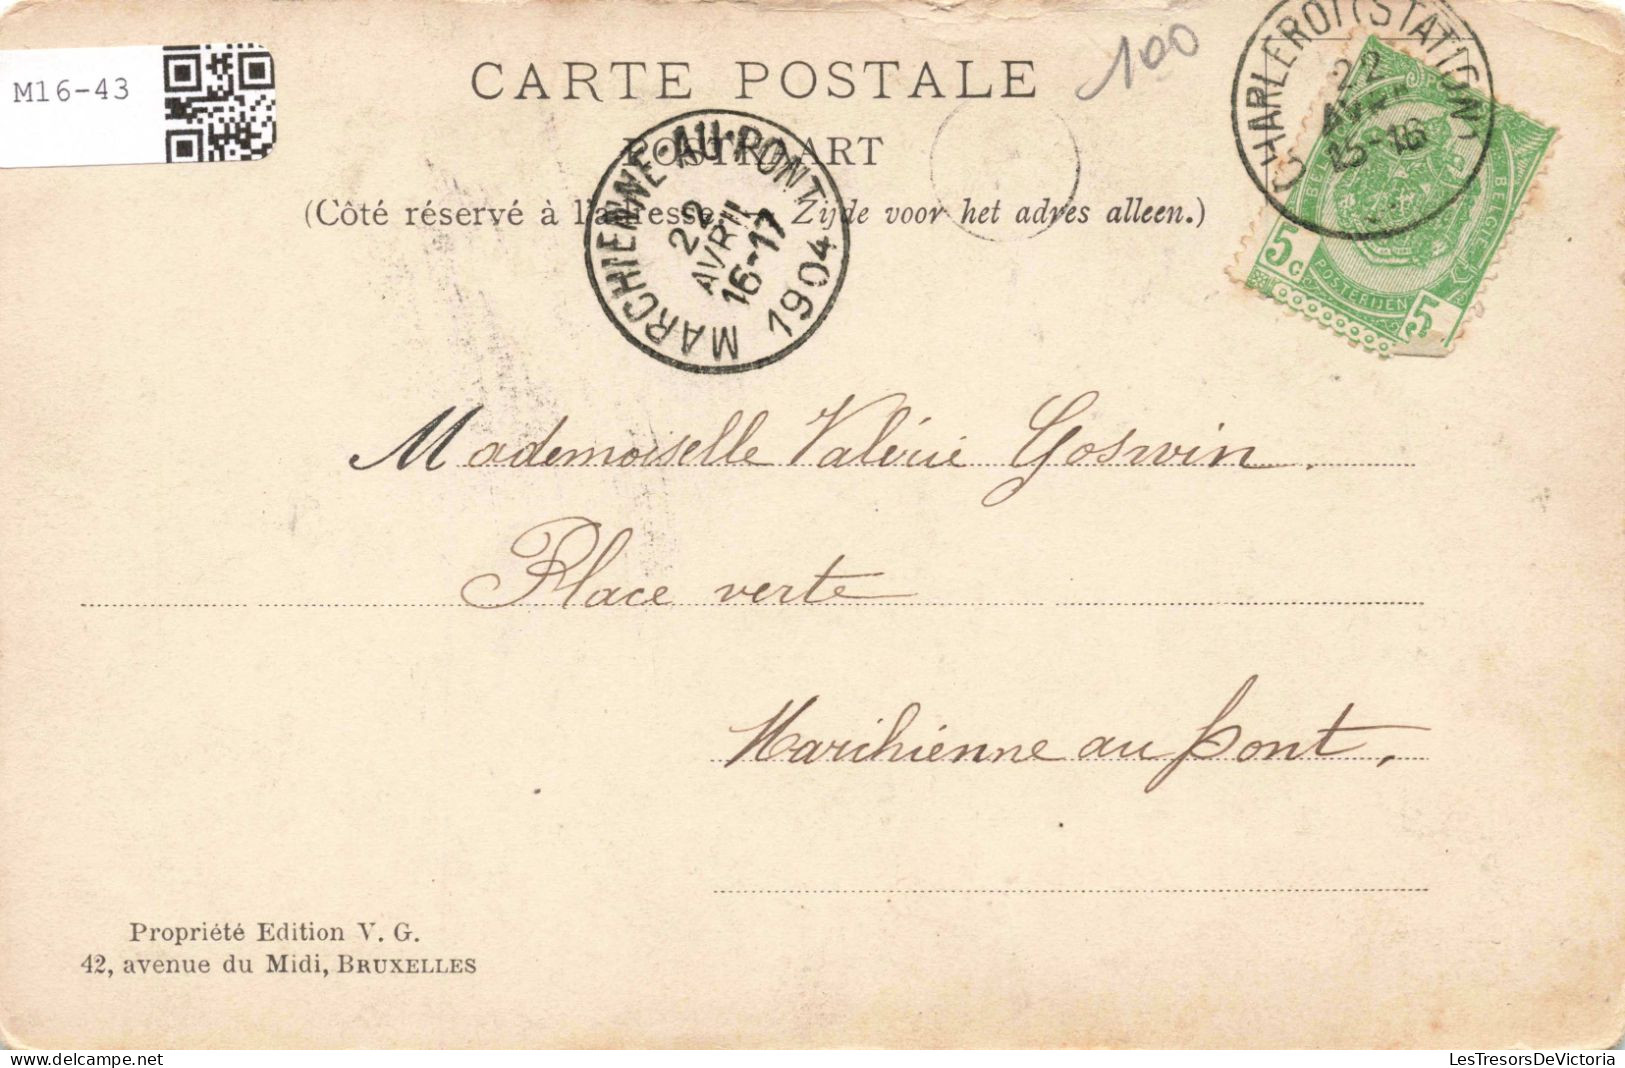 M16-43
100
CARTE POSTALE
POSTKAART
(Côté réservé à l'adresse. — Zijde voor het adres alleen.)
MARCHIENNE-AU-PONT
22
AVRIL
16-17
1904
CHARLEROI (STATION)
22
AVR
15-16
BELGIQUE
5 C
POSTERIJEN
5
Mademoiselle Valérie Goswin.
Place verte
Marchienne au pont,
Propriété Edition V. G.
42, avenue du Midi, BRUXELLES
LesTresorsDeVictoria